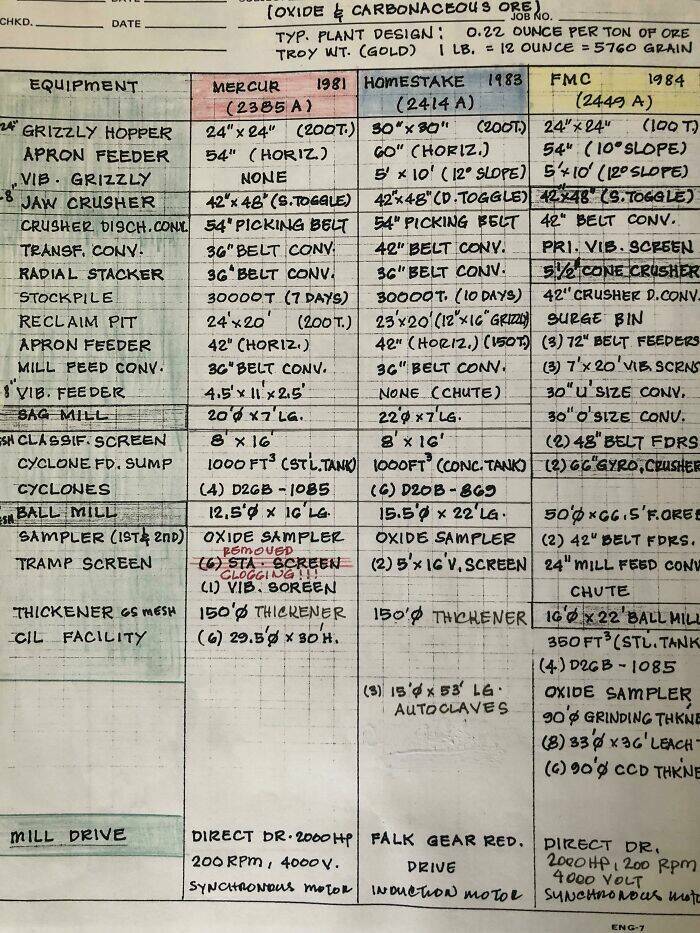 DATE
CHKD. DATE
(OXIDE & CARBONACEOUS ORE)
JOB NO.
TYP. PLANT DESIGN: 0.22 OUNCE PER TON OF ORE
TROY WT. (GOLD) 1 LB. = 12 OUNCE = 5760 GRAIN
EQUIPMENT MERCUR 1981 HOMESTAKE 1983 FMC 1984
(2385 A) (2414 A) (2449 A)
24" GRIZZLY HOPPER 24"x24" (200T.) 30"x30" (200T.) 24"x24" (100T)
APRON FEEDER 54" (HORIZ.) 60" (HORIZ.) 54" (10° SLOPE)
VIB. GRIZZLY NONE 5' x 10' (12° SLOPE) 5'x10' (12° SLOPE)
8" JAW CRUSHER 42"x48" (S.TOGGLE) 42"x48" (D.TOGGLE) 42"x48" (S.TOGGLE)
CRUSHER DISCH. CONV. 54" PICKING BELT 54" PICKING BELT 42" BELT CONV.
TRANSF. CONV. 36" BELT CONV. 42" BELT CONV. PRI. VIB. SCREEN
RADIAL STACKER 36" BELT CONV. 36" BELT CONV. 5 1/2' CONE CRUSHER
STOCKPILE 30000T (7 DAYS) 30000T. (10 DAYS) 42" CRUSHER D.CONV.
RECLAIM PIT 24'x20' (200T.) 23'x20' (12"x16" GRIZZLY) SURGE BIN
APRON FEEDER 42" (HORIZ.) 42" (HORIZ.) (150T.) (3) 72" BELT FEEDERS
MILL FEED CONV. 36" BELT CONV. 36" BELT CONV. (3) 7'x20' VIB. SCRNS
8" VIB. FEEDER 4.5'x11'x2.5' NONE (CHUTE) 30" U' SIZE CONV.
SAG MILL 20'Ø x 7' LG. 22'Ø x 7' LG. 30" O' SIZE CONV.
CLASSIF. SCREEN 8' x 16' 8' x 16' (2) 48" BELT FDRS
CYCLONE FD. SUMP 1000 FT³ (STL.TANK) 1000FT³ (CONC.TANK) (2) 66" GYRO. CRUSHER
CYCLONES (4) D26B-1085 (6) D20B-869
BALL MILL 12.5'Ø x 16' LG. 15.5'Ø x 22' LG. 50'Ø x 66.5' F.ORE
SAMPLER (1ST & 2ND) OXIDE SAMPLER OXIDE SAMPLER (2) 42" BELT FDRS.
REMOVED
TRAMP SCREEN (6) STA. SCREEN (2) 5'x16' V. SCREEN 24" MILL FEED CONV
CLOGGING!!!
(1) VIB. SCREEN CHUTE
THICKENER 65 MESH 150'Ø THICKENER 150'Ø THICKENER 16'Ø x 22' BALL MILL
CIL FACILITY (6) 29.5'Ø x 30'H. 350 FT³ (STL.TANK
(4) D26B-1085
(3) 15'Ø x 53' LG. OXIDE SAMPLER
AUTOCLAVES 90'Ø GRINDING THKNE
(8) 33'Ø x 36' LEACH
(6) 90'Ø CCD THKNE
MILL DRIVE DIRECT DR. 2000 HP FALK GEAR RED. DIRECT DR.
200 RPM, 4000 V. DRIVE 2000 HP, 200 RPM
4000 VOLT
SYNCHRONOUS MOTOR INDUCTION MOTOR SYNCHRONOUS MOTO
ENG-7